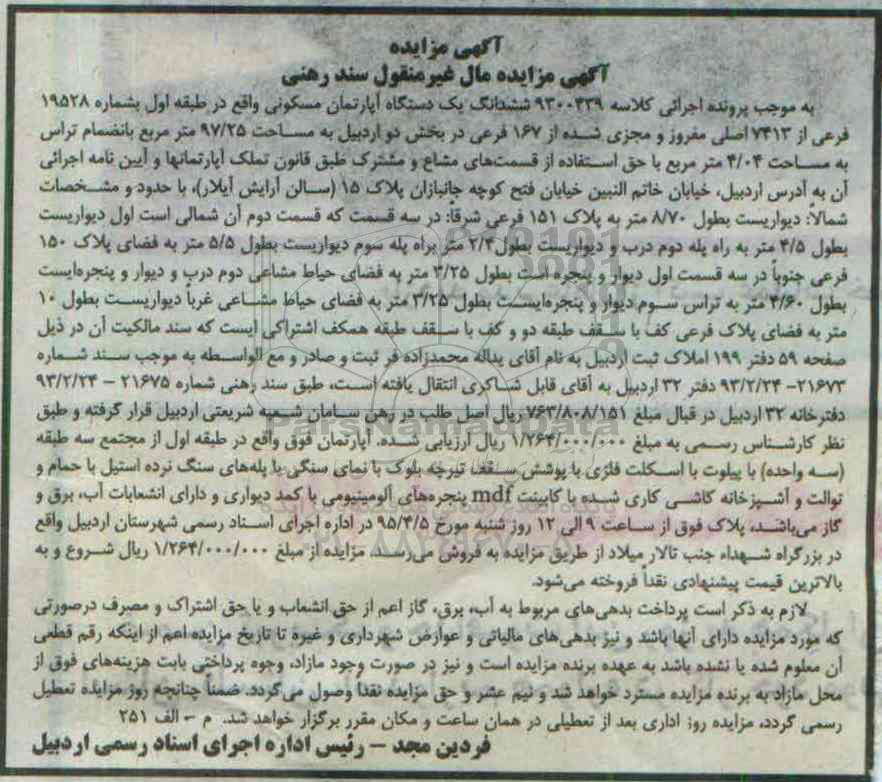 آگهی مزایده
آگهی مزایده مال غیرمنقول سند رهنی
به موجب پرونده اجرائی کلاسه ۹۳۰۰۴۳۹ ششدانگ یک دستگاه آپارتمان مسکونی واقع در طبقه اول بشماره ۱۹۵۲۸
فرعی از ۷۴۱۳ اصلی مفروز و مجزی شده از ۱۶۷ فرعی در بخش دو اردبیل به مساحت ۹۷/۲۵ متر مربع بانضمام تراس
به مساحت ۴/۰۴ متر مربع با حق استفاده از قسمت‌های مشاع و مشترک طبق قانون تملک آپارتمانها و آیین نامه اجرائی
آن به آدرس اردبیل، خیابان خاتم النبین خیابان فتح کوچه جانبازان پلاک ۱۵ (سالن آرایش آیلار)، با حدود و مشخصات
شمالاً: دیواریست بطول ۸/۷۰ متر به پلاک ۱۵۱ فرعی شرقاً: در سه قسمت که قسمت دوم آن شمالی است اول دیواریست
بطول ۴/۵ متر به راه پله دوم درب و دیواریست بطول ۲/۴ متر براه پله سوم دیواریست بطول ۵/۵ متر به فضای پلاک ۱۵۰
فرعی جنوباً در سه قسمت اول دیوار و پنجره است بطول ۳/۲۵ متر به فضای حیاط مشاعی دوم درب و دیوار و پنجره‌ایست
بطول ۴/۶۰ متر به تراس سوم دیوار و پنجره‌ایست بطول ۳/۲۵ متر به فضای حیاط مشاعی غرباً دیواریست بطول ۱۰
متر به فضای پلاک فرعی کف با سقف طبقه دو و کف با سقف طبقه همکف اشتراکی ایست که سند مالکیت آن در ذیل
صفحه ۵۹ دفتر ۱۹۹ املاک ثبت اردبیل به نام آقای یداله محمدزاده فر ثبت و صادر و مع الواسطه به موجب سند شماره
۲۱۶۷۳- ۹۳/۲/۲۴ دفتر ۳۲ اردبیل به آقای قابل شاکری انتقال یافته است، طبق سند رهنی شماره ۲۱۶۷۵ - ۹۳/۲/۲۴
دفترخانه ۳۲ اردبیل در قبال مبلغ ۷۶۳/۸۰۸/۱۵۱ ریال اصل طلب در رهن سامان شعبه شریعتی اردبیل قرار گرفته و طبق
نظر کارشناس رسمی به مبلغ ۱/۲۶۴/۰۰۰/۰۰۰ ریال ارزیابی شده. آپارتمان فوق واقع در طبقه اول از مجتمع سه طبقه
(سه واحده) با پیلوت با اسکلت فلزی با پوشش سقف تیرچه بلوک با نمای سنگی با پله‌های سنگ نرده استیل با حمام و
توالت و آشپزخانه کاشی کاری شده با کابینت mdf پنجره‌های آلومینیومی با کمد دیواری و دارای انشعابات آب، برق و
گاز می‌باشد، پلاک فوق از ساعت ۹ الی ۱۲ روز شنبه مورخ ۹۵/۴/۵ در اداره اجرای اسناد رسمی شهرستان اردبیل واقع
در بزرگراه شهداء جنب تالار میلاد از طریق مزایده به فروش می‌رسد. مزایده از مبلغ ۱/۲۶۴/۰۰۰/۰۰۰ ریال شروع و به
بالاترین قیمت پیشنهادی نقداً فروخته می‌شود.
لازم به ذکر است پرداخت بدهی‌های مربوط به آب، برق، گاز اعم از حق انشعاب و یا حق اشتراک و مصرف درصورتی
که مورد مزایده دارای آنها باشد و نیز بدهی‌های مالیاتی و عوارض شهرداری و غیره تا تاریخ مزایده اعم از اینکه رقم قطعی
آن معلوم شده یا نشده باشد به عهده برنده مزایده است و نیز در صورت وجود مازاد، وجوه پرداختی بابت هزینه‌های فوق از
محل مازاد به برنده مزایده مسترد خواهد شد و نیم عشر و حق مزایده نقداً وصول می‌گردد. ضمناً چنانچه روز مزایده تعطیل
رسمی گردد، مزایده روز اداری بعد از تعطیلی در همان ساعت و مکان مقرر برگزار خواهد شد. م - الف ۲۵۱
فردین مجد - رئیس اداره اجرای اسناد رسمی اردبیل
ParsNamadData